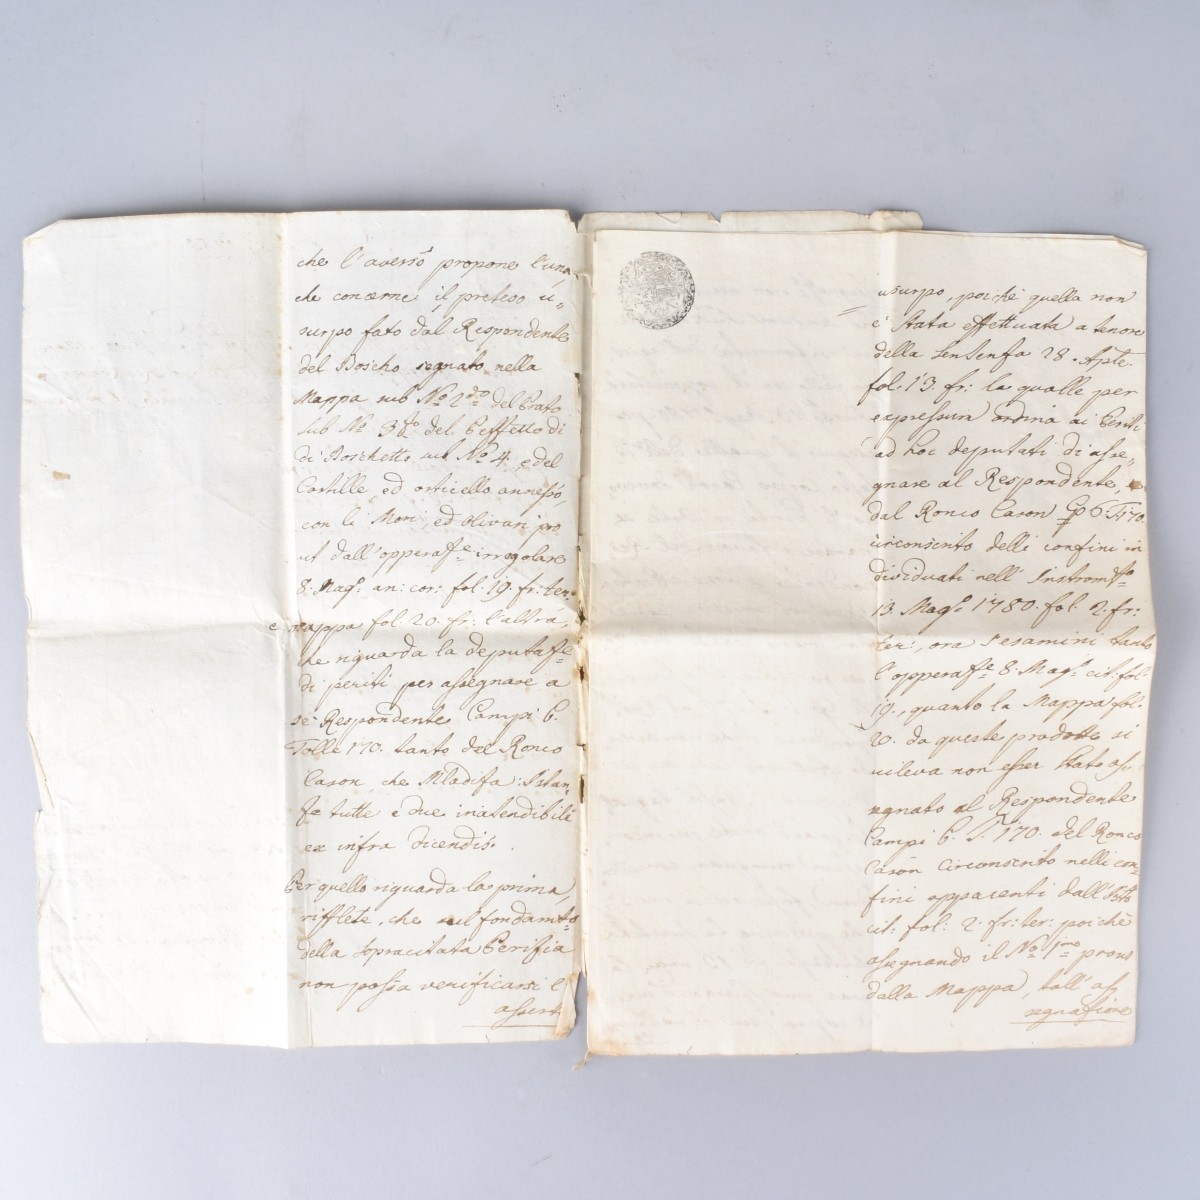 che l'averso propone l'una
che concerne il preteso u„
surpo fato dal Respondente
del Boscho segnato nella
Mappa sub No 2do del Prato
sub No 3zo del
di Boschetto sub No 4, e del
Cortille, ed orticello annesso,
con li Mori, ed olivari pro
ut dall'opperaze irregolare
8. Mago an: cor: fol: 19. fr: ter:
e mappa fol. 20. fr: l'altra,
che riguarda la deputaze
di periti per assegnare a
se Respondente Campi 6.
Tolle 170. tanto del Ronco
Cason, che Istan„
ze tutte e due inatendibili
ex infra dicendis.
Per quello riguarda la prima,
rifflete, che sul fondamto
della sopracitata Perizia
non possa verificarsi l'
assert
usurpo, poichè quella non
è stata effettuata a tenore
della 28.
fol: 13. fr: la qualle per
expressum ordina ai Periti
ad hoc deputati di asse„
gnare al Respondente,
dal Ronco Cason 6 170.
circonscrito delli confini in
dividuati nell' Instromto
13. Mago 1780. fol. 2. fr:
ter:, ora s'esamini tanto
l'opperaze 8 Mago cit: fol:
19., quanto la Mappa fol.
20. da queste prodotte si
rileva non esser stato as„
segnato al Respondente
Campi 6. T. 170. del Ronco
Cason circonscrito nelli con„
fini apparenti dall'
cit: fol: 2. fr: ter: poichè
assegnando il No 1mo
dalla Mappa, tall' as„
segnazione